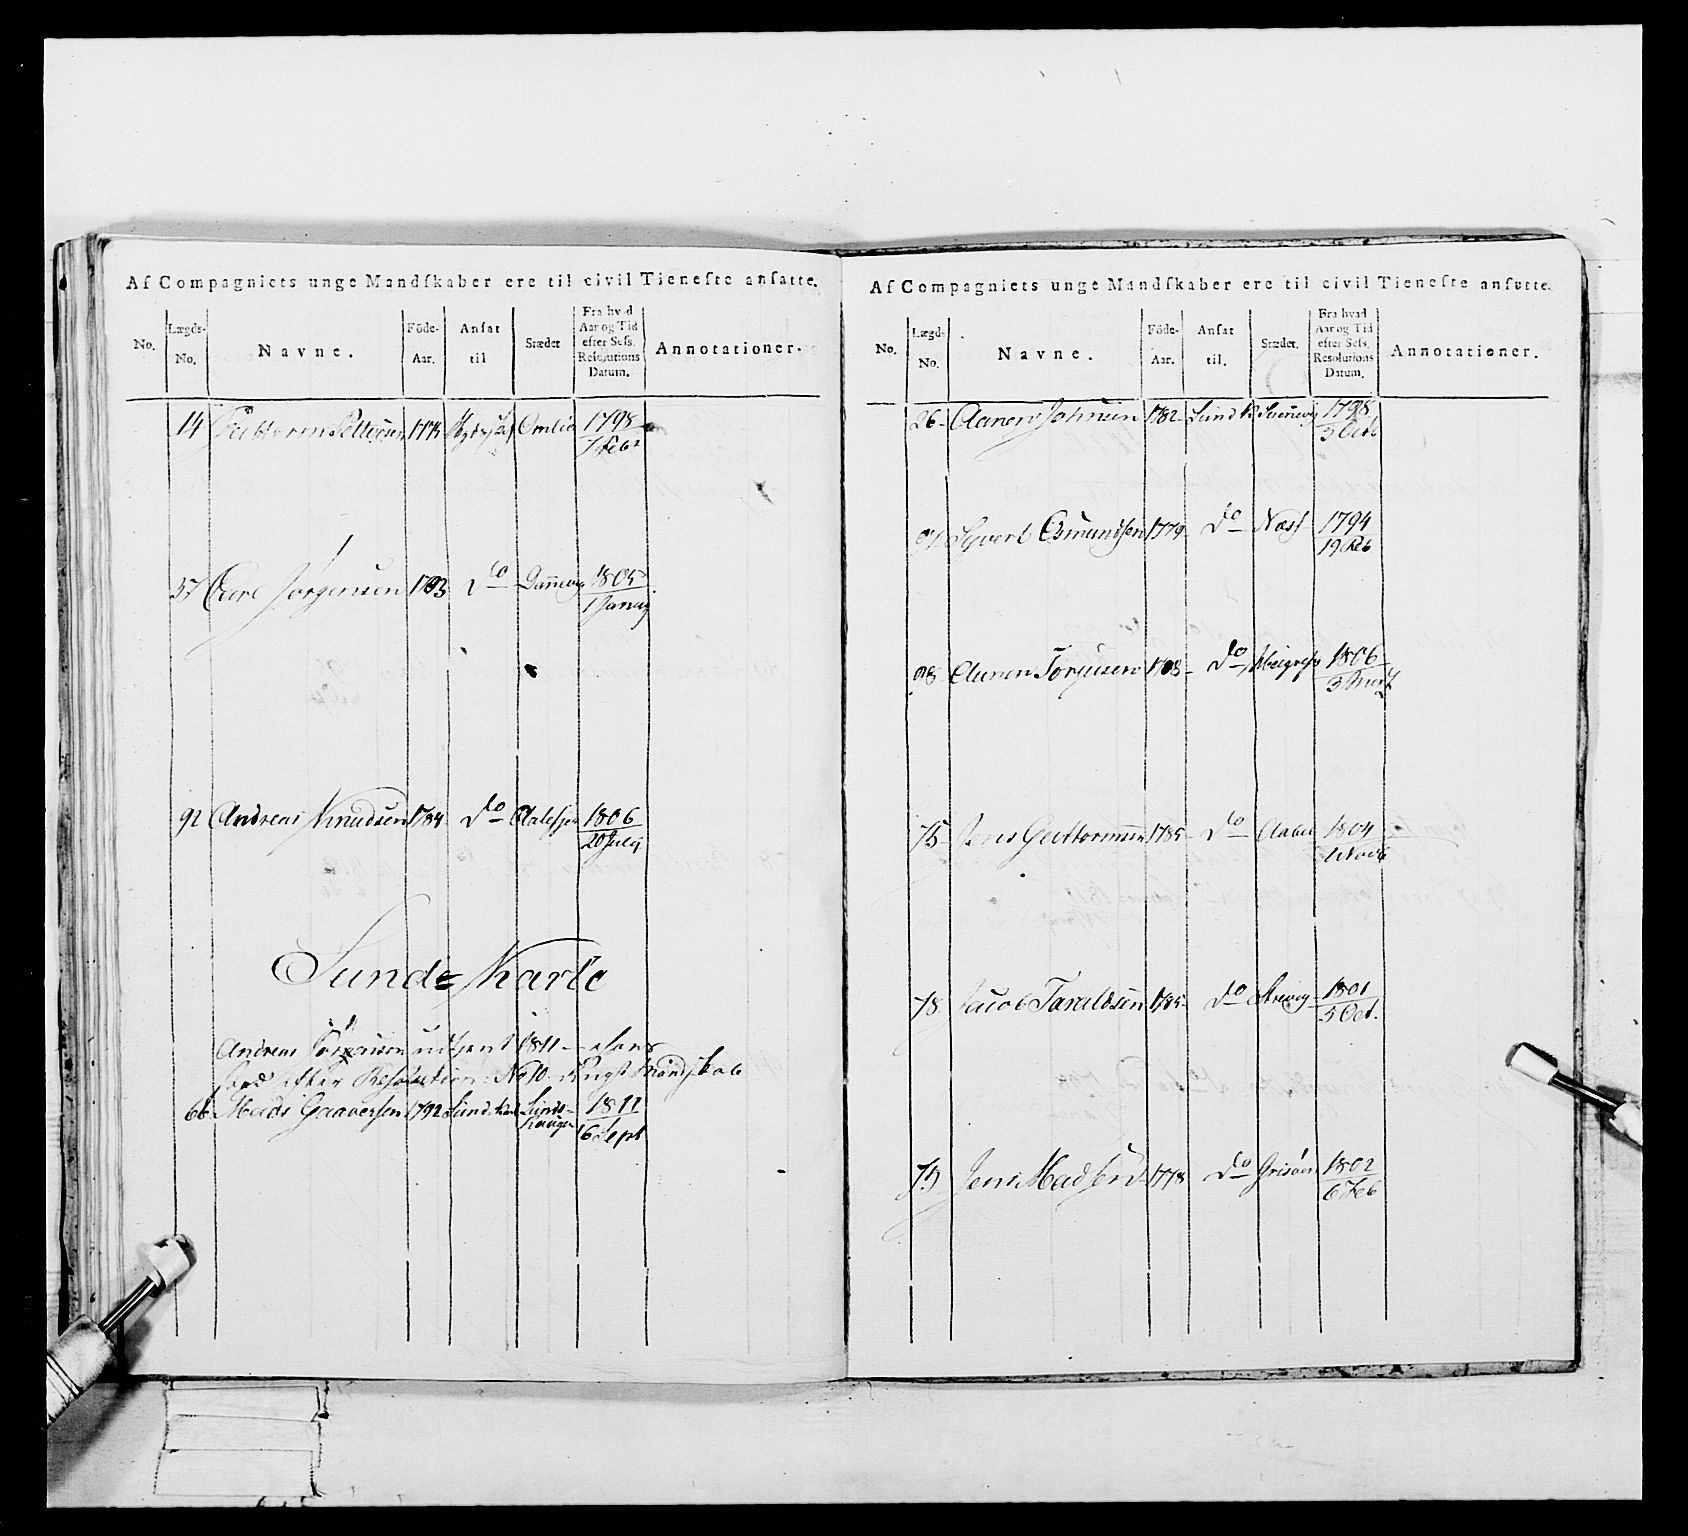 Af Compagniets unge Mandſkaber ere til civil Tieneſte anſatte.
No. Lægds-No. Navne. Föde-Aar. Anſat til Stædet Fra hvad Aar og Tid efter Seſs. Reſolutions Datum. Annotationer.
14 Guttorm Pettersen Omliö 1798
7 Feb
57 Carl Jörgensen 1783 do Dannevig 1805
1 Januarj
92 Andreas Knudsen 1784 do 1806
20 July
Sund=Karle
Andreas 1811
efter Resolution No 10 Mandskab
66 Mads Gaaversen 1792 Sundkarl 1811
6 Sept
Af Compagniets unge Mandſkaber ere til civil Tieneſte anſatte.
No. Lægd-No. Navne. Föde-Aar. Anſat til. Stædet. Fra hvad Aar og Tid efter Seſs. Resolutions Datum. Annotationer.
26 Aanen Johnsen 1782 Sund K 1798
5 Octb
Syvert Osmundsen 1779 do Næss 1794
28 Aanen Torjusen 1783 do 1806
3
75 Jens Guttormsen 1785 do Aabel 1804
1 Novb
78 Jacob Taraldsen 1785 do 1801
5 Oct.
79 Jens Madsen 1778 do Grisöen 1802
6 Feb